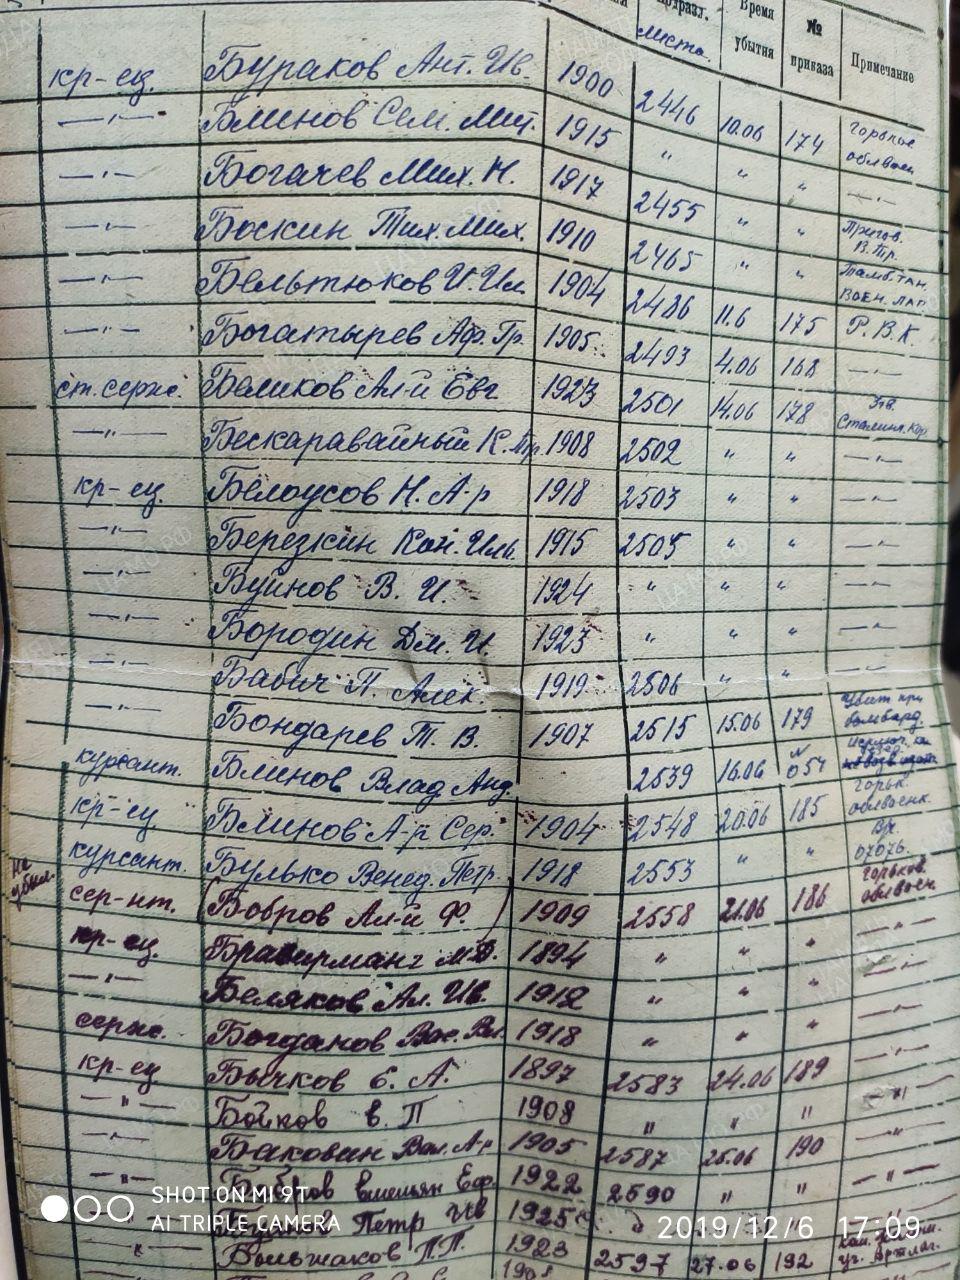 Время убытия № приказа Примечание
листа
кр-ец. Бураков Ант. Ив. 1900 2446 10.06 174 облвоен
—"— Блинов Сем. Мит. 1915 " " " —"—
—"— Богачев Мих. Н. 1917 2455 " "
—"— Боскин Тих. Мих. 1910 2465 " "
—"— Бельтюков И. Ил. 1904 2486 11.6 175 Р.В.К.
—"— Богатырев Аф. Гр. 1905 2493 4.06 168 —"—
ст. серж. Беликов Ал-й Евг 1923 2501 14.06 178
—"— Бескаравайный К. 1908 2502 " " —"—
кр-ец Белоусов Н. А-р 1918 2503 " " —"—
—"— Березкин Кон. Иль. 1915 2505 " " —"—
—"— Буинов В. И. 1924 " " " —"—
—"— Бородин Дм. И. 1923 " " " —"—
—"— Бабич П. Алек. 1919 2506 " " —"—
—"— Бондарев Т. В. 1907 2515 15.06 179 Убит при бомбард.
курсант. Блинов Влад. Анд. 2539 16.06 N 054
кр-ец Блинов А-р Сер. 1904 2548 20.06 185 Горьк. облвоенк.
курсант. Булько Венед. Петр. 1918 2553 " " 07076.
не убыл. сер-нт. Бобров Ал-й Ф. 1909 2558 21.06 186 Горьков. облвоен.
кр-ец. 1894 " " " —"—
—"— Беляков Ал. Ив. 1912 " " " —"—
серж. Богданов Вас. Вл. 1918 " " " —"—
кр-ец Бычков Е. А. 1897 2583 24.06 189 —"—
—"— Бойков В. П 1908 " " " —"—
—"— Баковин Вал. А-р 1905 2587 25.06 190 —"—
—"— Емельян Еф. 1922 2590 " " —"—
—"— Петр Ив 1925 "
" Большаков П.П. 1923 2597 27.06 192
1908
SHOT ON MI 9T
AI TRIPLE CAMERA
2019/12/6 17:09